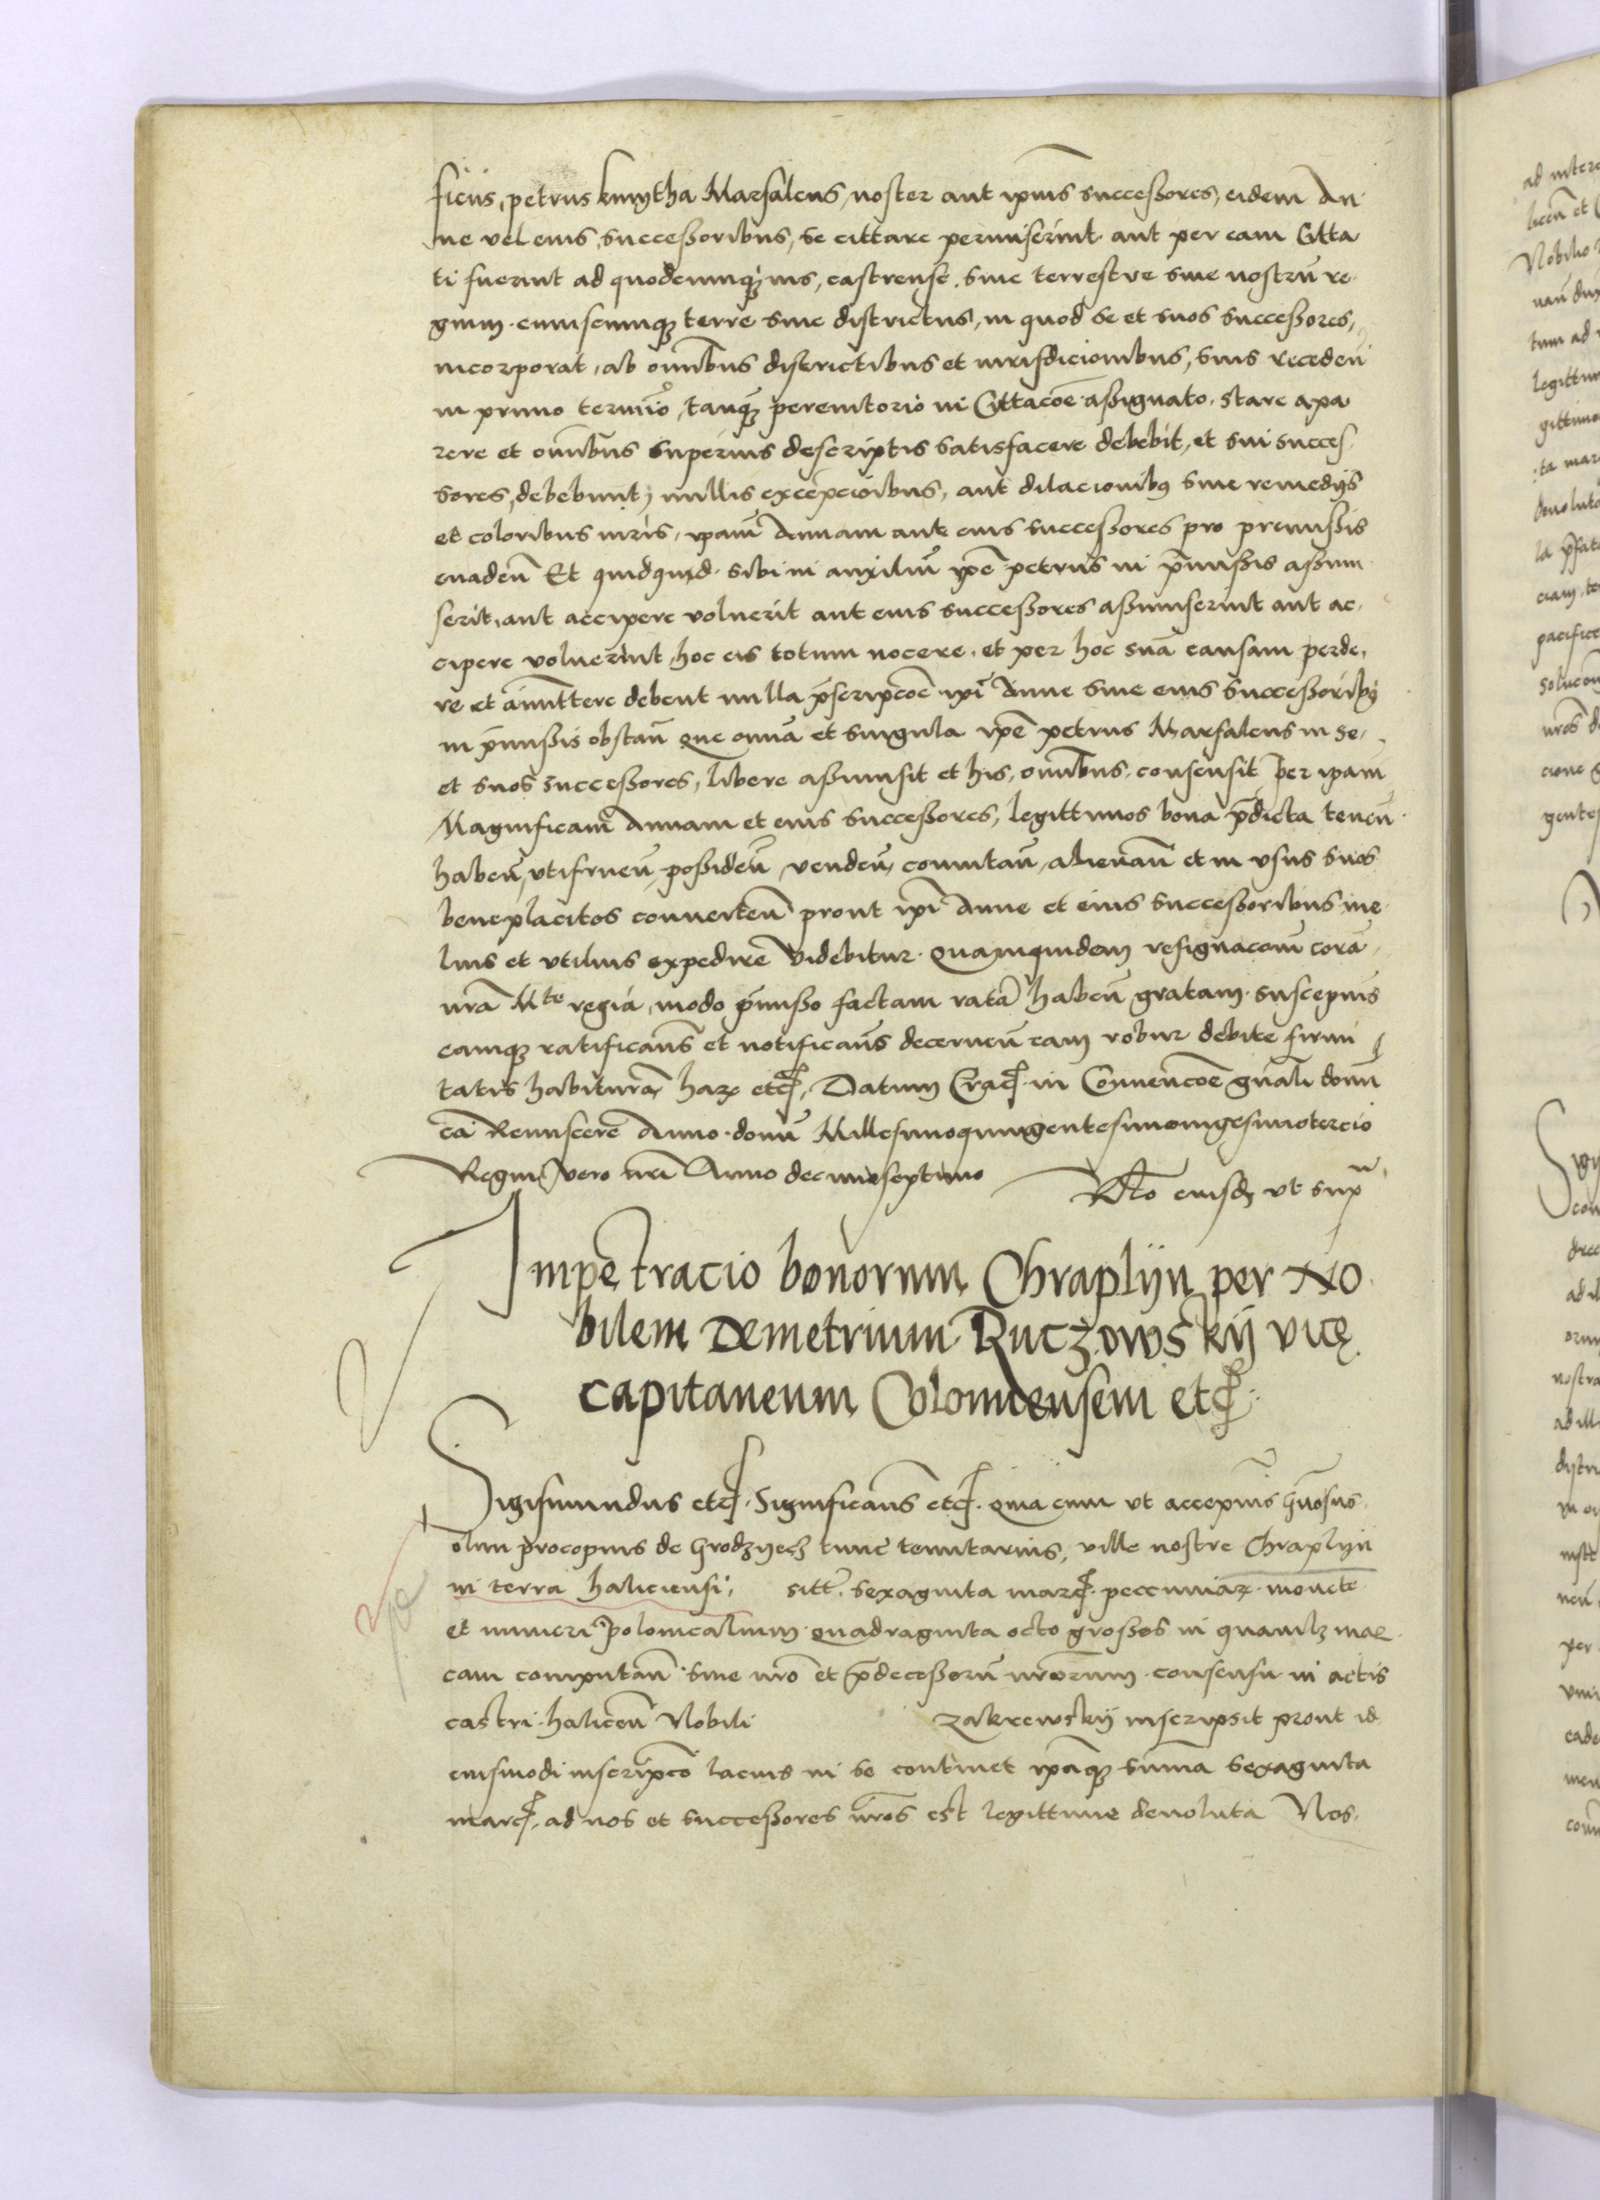 ficus, petrus kmytha Marsalcus, noster aut ipius successores, eidem An
ne vel eius, successoribus, se cittare permiserint aut per eam Citta
ti fuerint ad quodcumq3 ius, castrense, siue terrestre siue nostrū re
gium. cuiuscumq3 terre siue districtus, in quod se et suos successores,
incorporat, ab omībus districtibus et iurisdicionibus, suis recedeñ
in primo termio, tanq̄3 peremtorio in Cittacōe assignato. stare apa
rere et omībus superius descriptis satisfacere debebit, et sui succes
sores, debebunt, nullis excepcioibus, aut dilacionib9 siue remedijs
et coloribus iuris, ipam Annam aut eius successores pro premissis
euadeñ Et quidquid sibi in auxiliū ipē petrus in p̄missis assum
serit, aut accipere voluerit aut eius successores assumserint aut ac
cipere voluerint, hoc eis totum nocere. et per hoc suā causam perde,
re et amittere debent nulla p̄scripcōe ipi Anne siue eius successorib9
in p̄missis obstañ que omīa et singula ipē petrus Marsalcus in se
et suos successores, libere assumsit et his, omībus, consensit per ipam
Magnificam Annam et eius successores, legittimos bona p̄dicta teneñ
habeñ, vtifrueñ, possideñ, vendeñ, comutañ, alienañ et in vsus suos
beneplacitos conuerteñ prout ipi Anne et eius successoribus me
lius et vtilius expedire videbitur. Quamquidem resignacōm corā
nrā Mte regia, modo p̄misso factam ratā habeñ gratam suscepim9
eamq3 ratificam9 et notificam9 decerneñ eam robur debite firmi
tatis habiturā harz etc. Datum Crac. in Conuencōe gn̄ali domī
ca Reminiscere Anno domī Millesimoquingentesimovigesimotercio
Regni vero nri Anno decimoseptimo Rlo eiusd3 vt sup̄
Impetracio bonorum Chraplijn per No
bilem Demetrium Ruczowskij vice
capitaneum Colomiensem etc.
Sigismundus etc. Significam9 etc. Quia cum vt accepim9 Gn̄osus
olim procopius de Grodzyecz tunc tenutarius, ville nostre Chraplijn
in terra haliciensi, sitt. sexaginta marc. peccuniarz monete
et numeri polonicalium quadraginta octo grossos in quaml3 mar
cam computañ. sine nrō et p̄decessorū nrōrum consensu in actis
castri haliceñ Nobili zakrewskij inscripsit prout id
eiusmodi inscripcō lacius in se continet ipāq3 sūma sexaginta
marc, ad nos et successores nr̄os est legittime deuoluta Nos